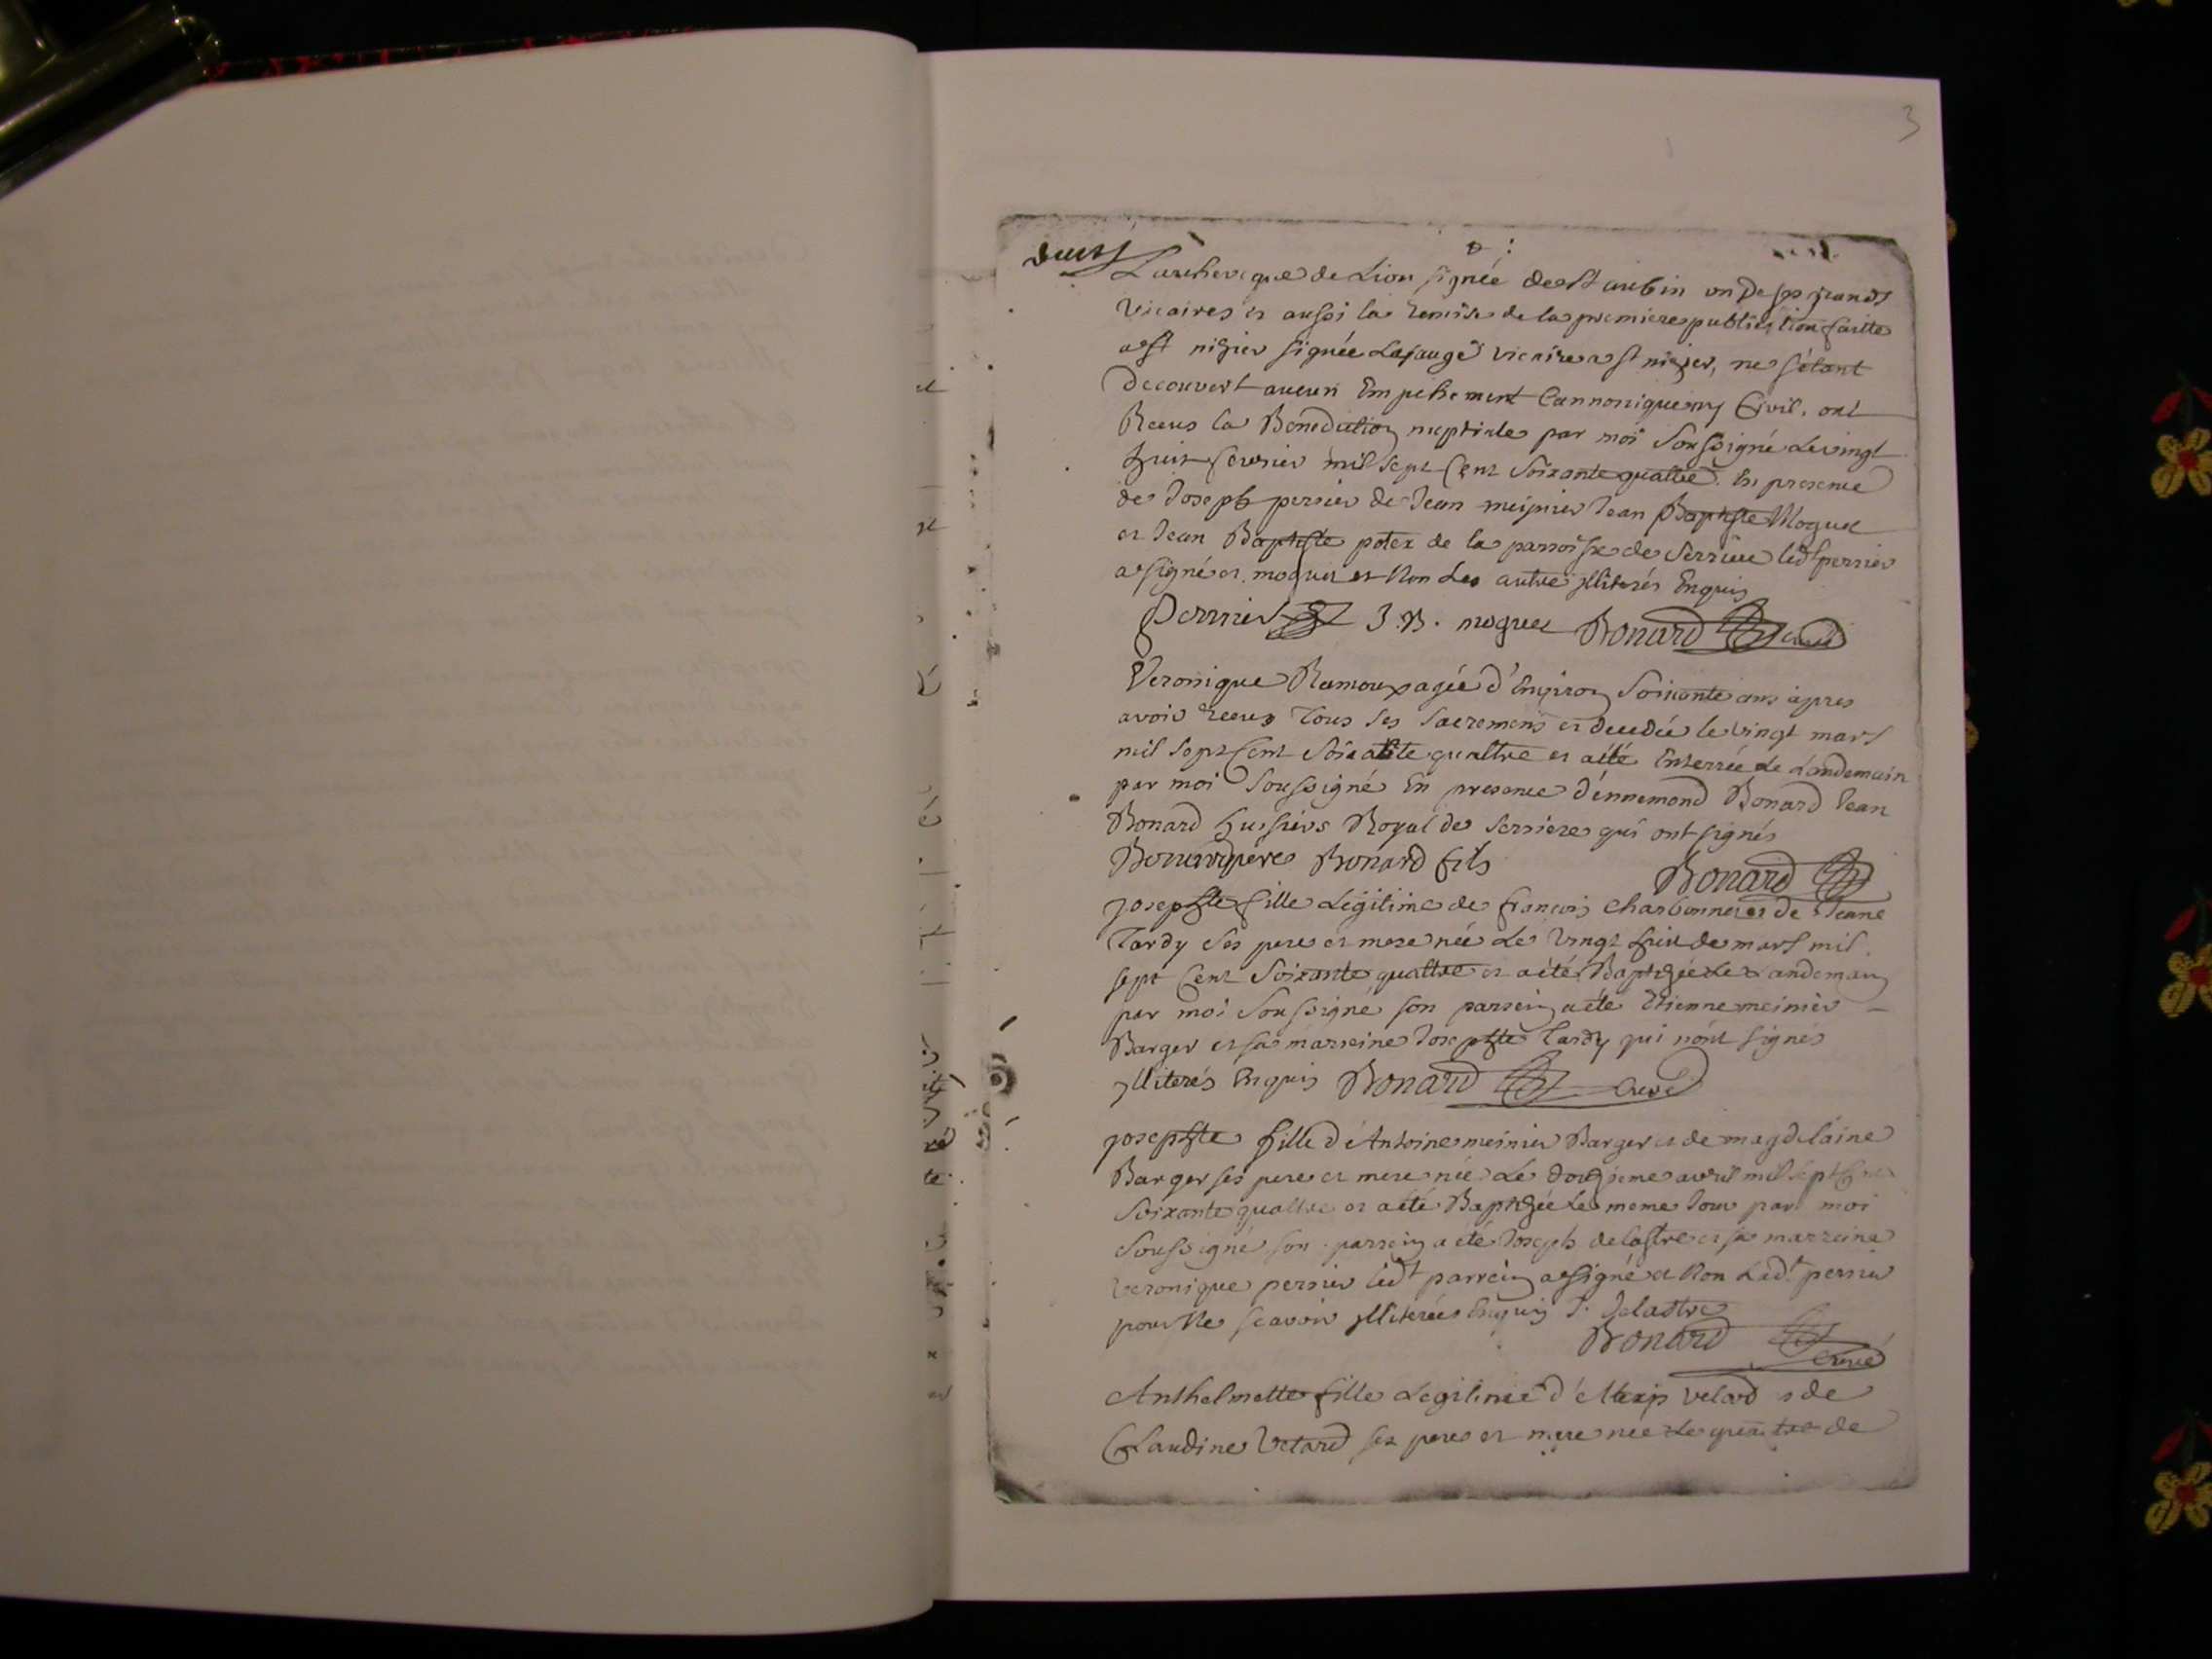 3
L'archeveque de Lion signée de St aubin un de ses grands
vicaires et aussi la remise de la premiere publication faitte
a St nizier signée Lajauge vicaire a St nizier, ne s'étant
decouvert aucun Empechement Cannonique ny Civil, ont
Receus la Benediction nuptiale par moi Soussigné Le vingt
huit fevrier mil sept Cent Soixante quattre En presence
de Joseph perrier de Jean meinier Jean Baptiste Moguet
et Jean Baptiste potex de la parroisse de Serriere ledt perrier
a signé et moguet et Non Les autre jlliterés Enquis
Perrier J.B. moguet Bonard curé
Veronique Ramoux agée d'Environ Soixante ans apres
avoir receus Tous ses Sacremens et decedée le vingt mars
mil Sept Cent Soixante quattre et a eté Enterrée Le Landemain
par moi Soussigné En presence d'ennemond Bonard Jean
Bonard huissiers Royal de Serriere qui ont signés
Bonnard père Bonard fils
Bonard
josephte fille Légitime de françois Charbonner et de Jeane
Tardy Ses pere et mere née Le Vingt huit de mars mil
sept Cent Soixante quattre et a été Baptizée Le Landemain
par moi Soussigné son parrein a éte Etienne meinier
Barger et sa marreine Josephte Tardy qui n'ont signés
jlliterés Enquis Bonard Curé
josephte fille d'Antoine meinier Barger et de magdelaine
Barger ses pere et mere née Le douzieme avril mil sept Cent
Soixante quattre et a été Baptizée Le meme Jour par moi
Soussigné son parrein a été Joseph delastre et sa marreine
veronique perrier ledt parrein a signé et Non Ladt perrier
pour Ne scavoir jlliterée Enquis J. Delastre
Bonard curé
Anthelmette fille Legitime d'Alexis velard et de
Claudine Vetard ses pere et mere née Le quattre de